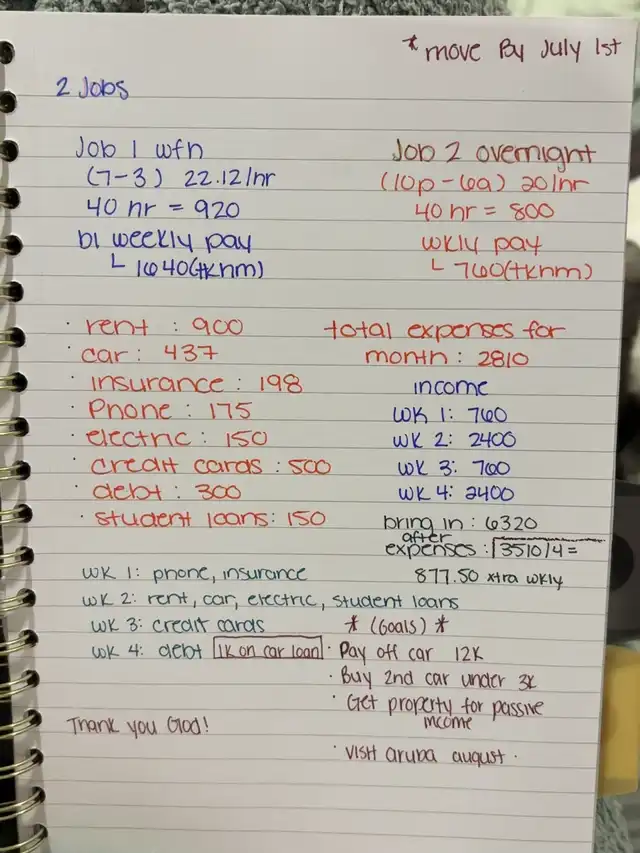 *move By July 1st
2 Jobs
Job 1 wfh
(7-3) 22.12/hr
40 hr = 920
bi weekly pay
1640(tkhm)
Job 2 overnight
(10p-6a) 20/hr
40 hr = 800
wkly pay
760(tkhm)
· rent : 900
· car : 437
· insurance : 198
· Phone : 175
· electric : 150
· credit cards : 500
· debt : 300
· student loans : 150
total expenses for
month : 2810
income
WK 1: 760
WK 2: 2400
WK 3: 760
WK 4: 2400
bring in : 6320
after
expenses : 3510/4 =
877.50 xtra wkly
WK 1: phone, insurance
WK 2: rent, car, electric, student loans
WK 3: credit cards
WK 4: debt 1K on car loan
* (Goals) *
· Pay off car 12K
· Buy 2nd car under 3K
· Get property for passive
income
· visit aruba august ·
Thank you God!